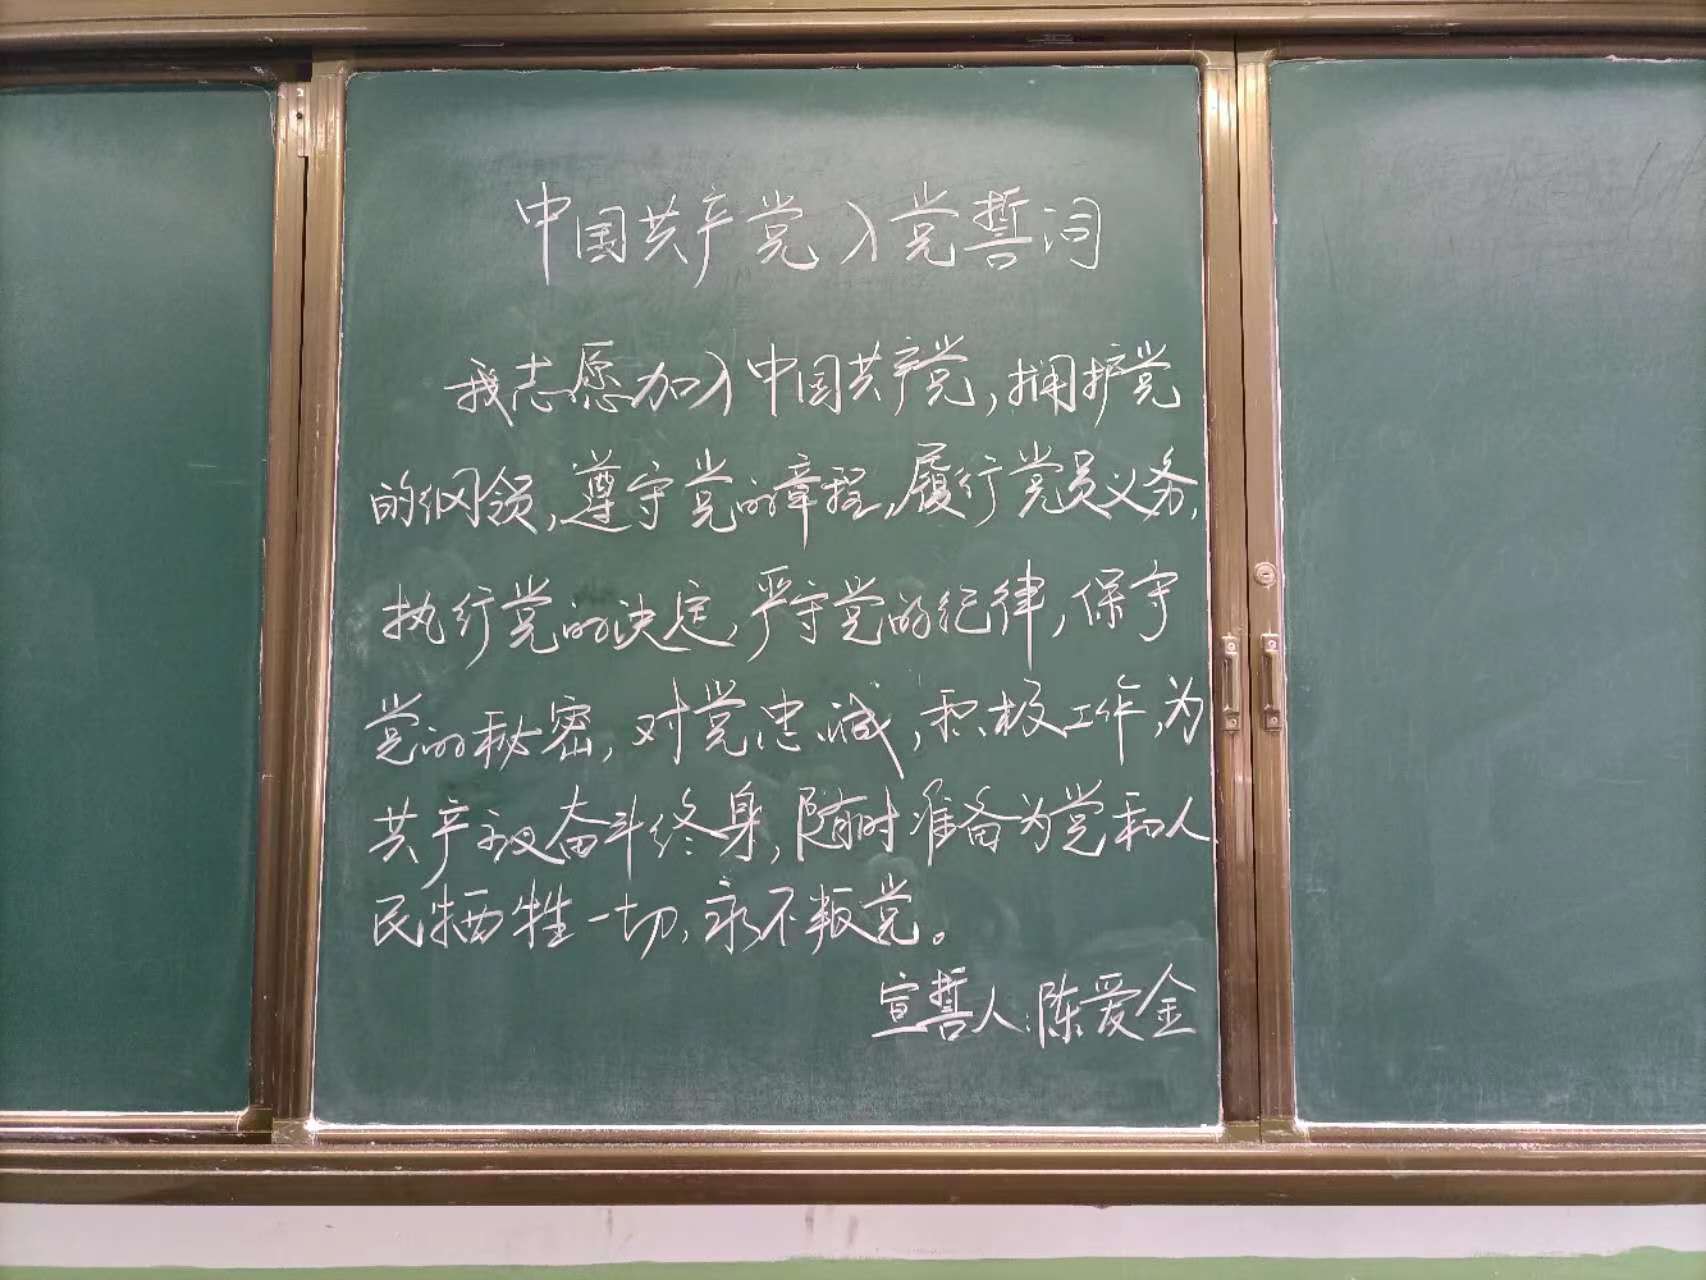 中国共产党入党誓词
我志愿加入中国共产党,拥护党
的纲领,遵守党的章程,履行党员义务,
执行党的决定,严守党的纪律,保守
党的秘密,对党忠诚,积极工作,为
共产主义奋斗终身,随时准备为党和人
民牺牲一切,永不叛党。
宣誓人:陈爱金